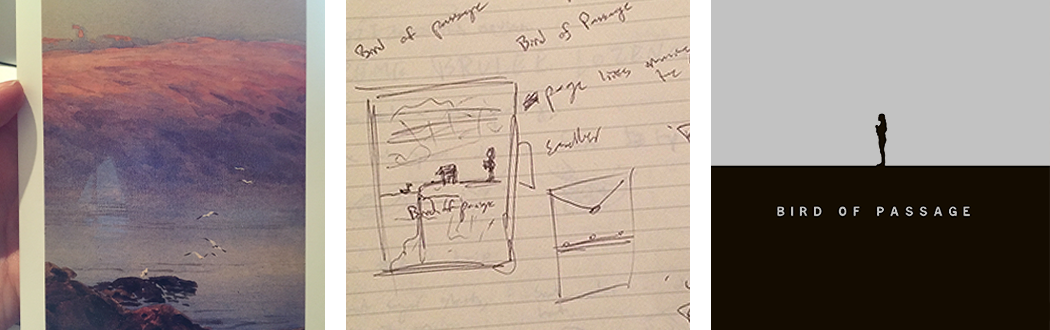 Bird of passage
Bird of Passage
page lines
smaller
Bird of passage
BIRD OF PASSAGE